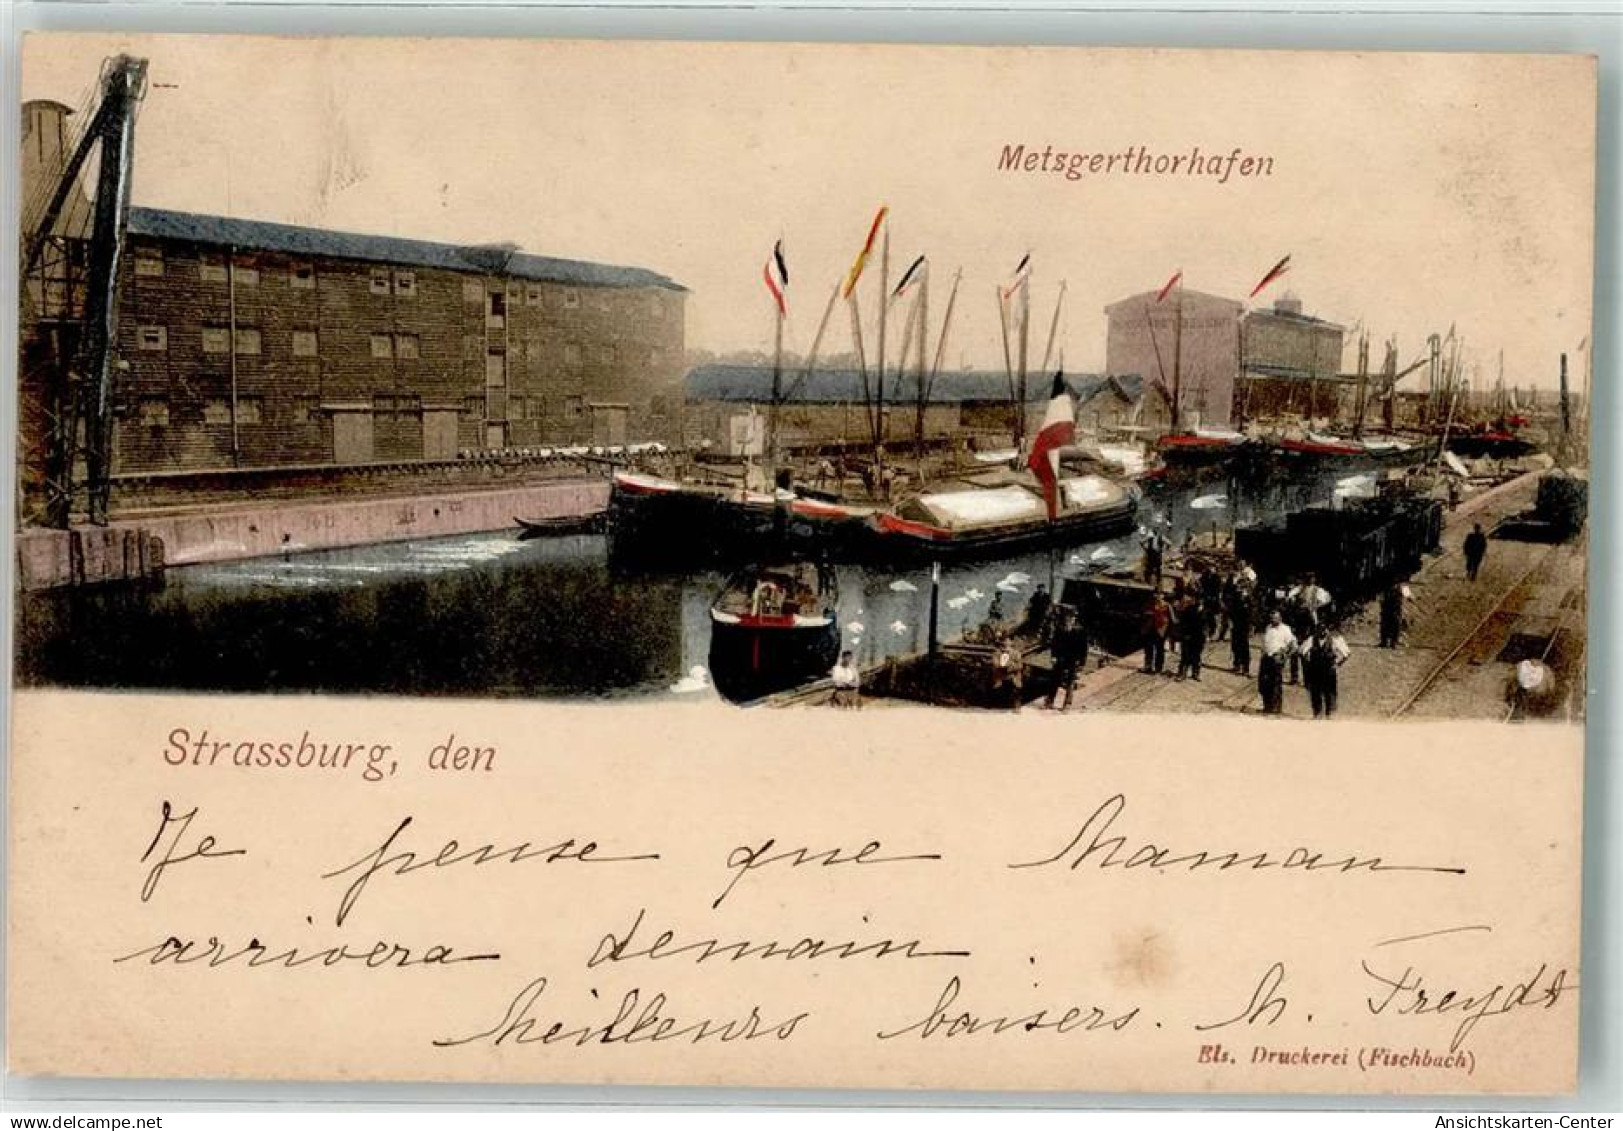 Metsgerthorhafen
Strassburg, den
Je pense que Maman
arrivera demain.
Meilleurs baisers. M. Freydt
Els. Druckerei (Fischbach)
www.delcampe.net
Ansichtskarten-Center